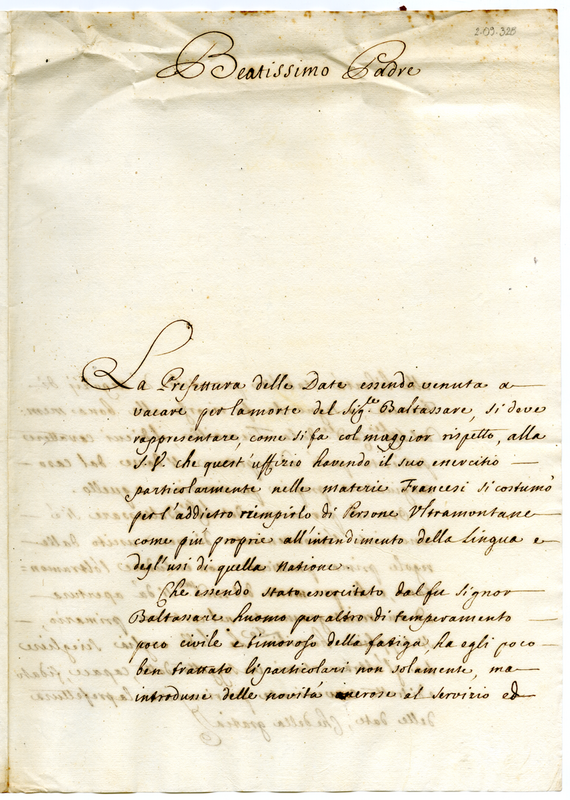 2.09.325
Beatissimo Padre
La Prefettura delle Date essendo venuta a
vacare per la morte del Sig.re Baltassare, si deve
rappresentare, come si fa col maggior rispetto, alla
S.V. che quest'uffizio havendo il suo esercitio
particolarmente nelle materie Francesi si costumò
per l'addietro riempirlo di Persone Vltramontane
come più proprie all'intendimento della Lingua e
degl'usi di quella natione.
Che essendo stato esercitato dal fu Signor
Baltassare huomo per altro di temperamento
poco civile e timoroso della fatiga, ha egli poco
ben trattato li particolari non solamente, ma
introdusse delle novità onerose al servizio ed